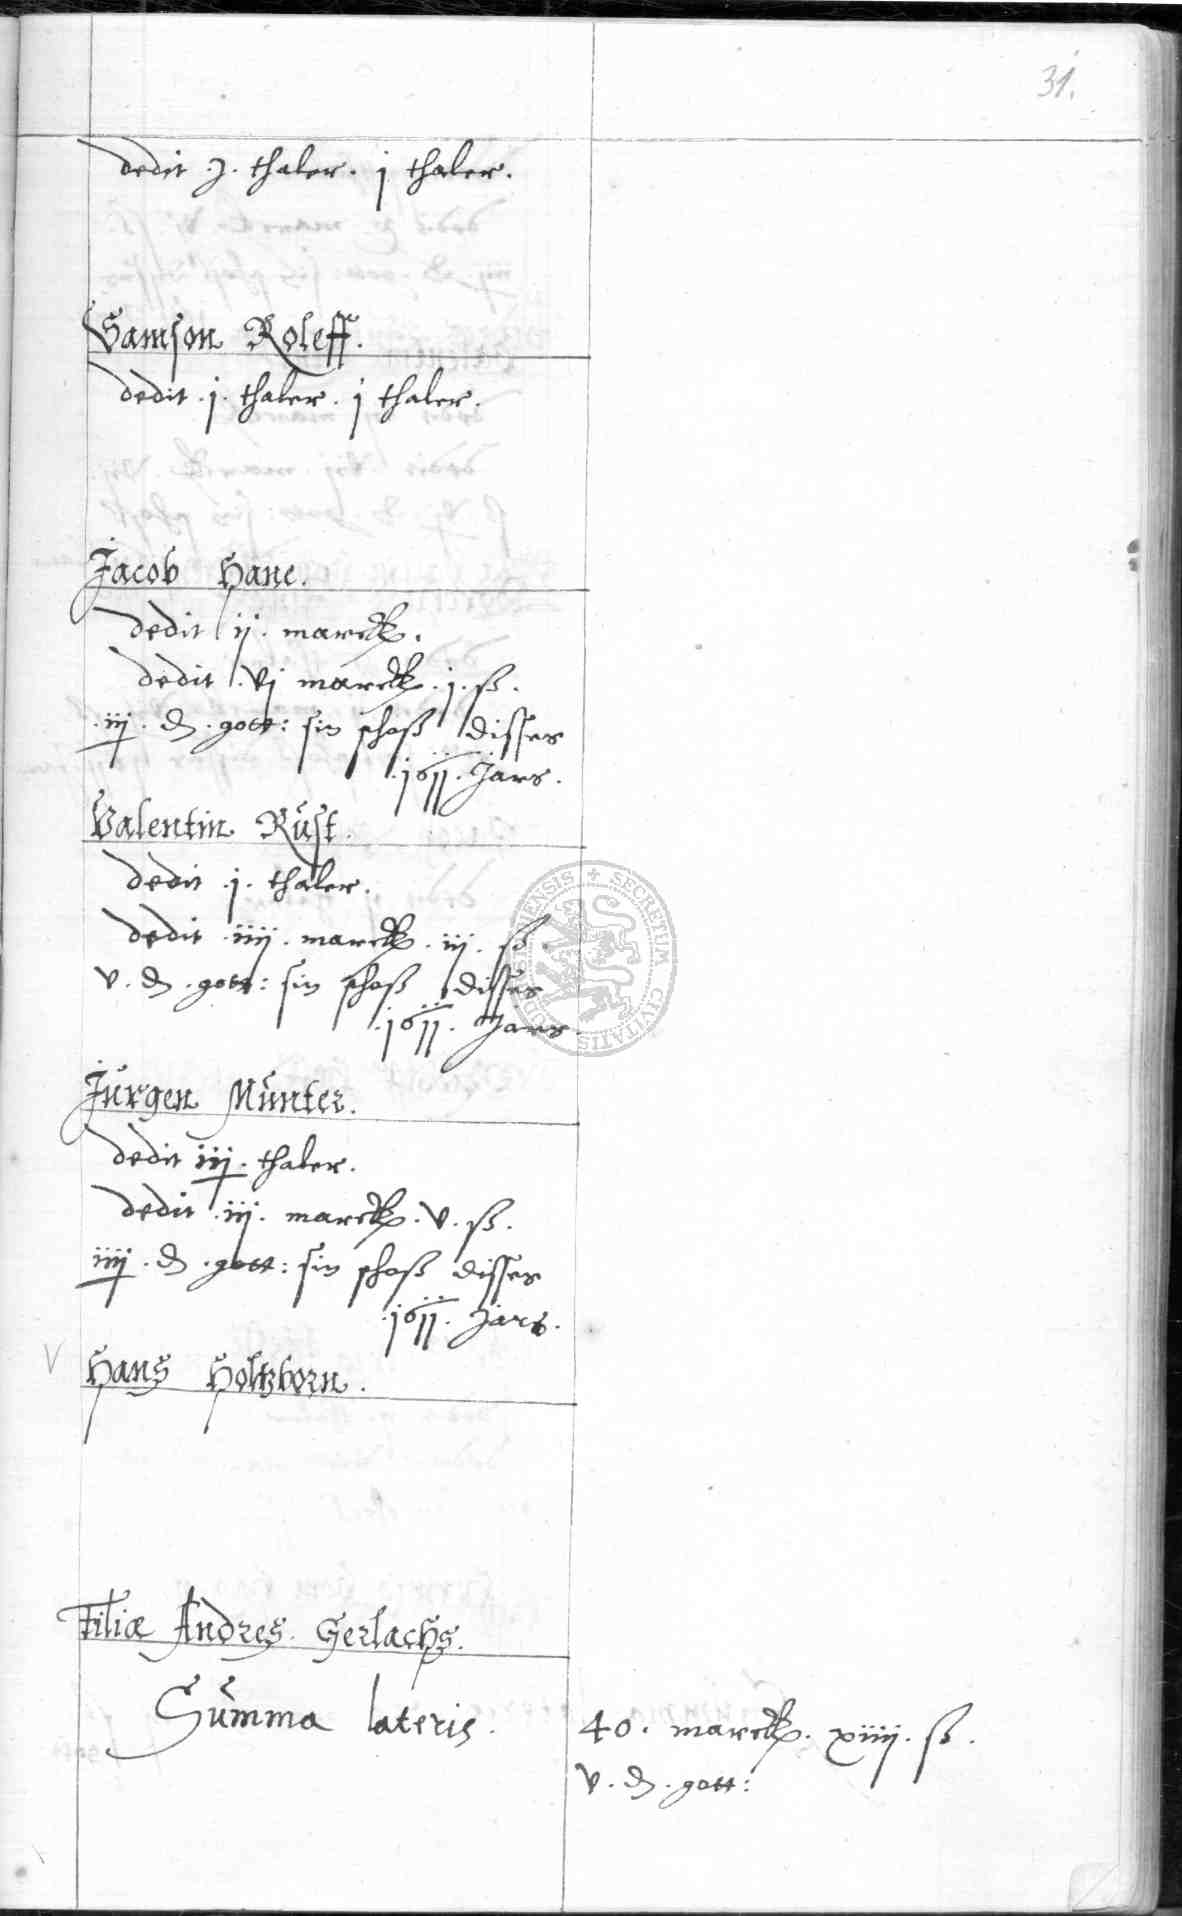 31.
dedit .j. thaler. j thaler.
Samson Roleff.
dedit .j. thaler. j thaler.
Jacob Hane.
dedit ij. marck.
dedit .vj marck. j. ß.
.iij. d. gott: sin schoß disses
.1611. Jars.
Valentin Rust.
dedit .j. thaler.
dedit .iiij. marck. iij. ß.
v. d. gott: sin schoß disses
.1611. Jars.
Jürgen Münter.
dedit iij. thaler.
dedit .iij. marck. v. ß.
iiij. d. gott: sin schoß disses
.1611. Jars.
Hans Holtzborn.
Filiæ Andres Gerlachs.
Summa lateris.
40. marck. xiiij. ß.
v. d. gott:
SECRETUM CIVITATIS